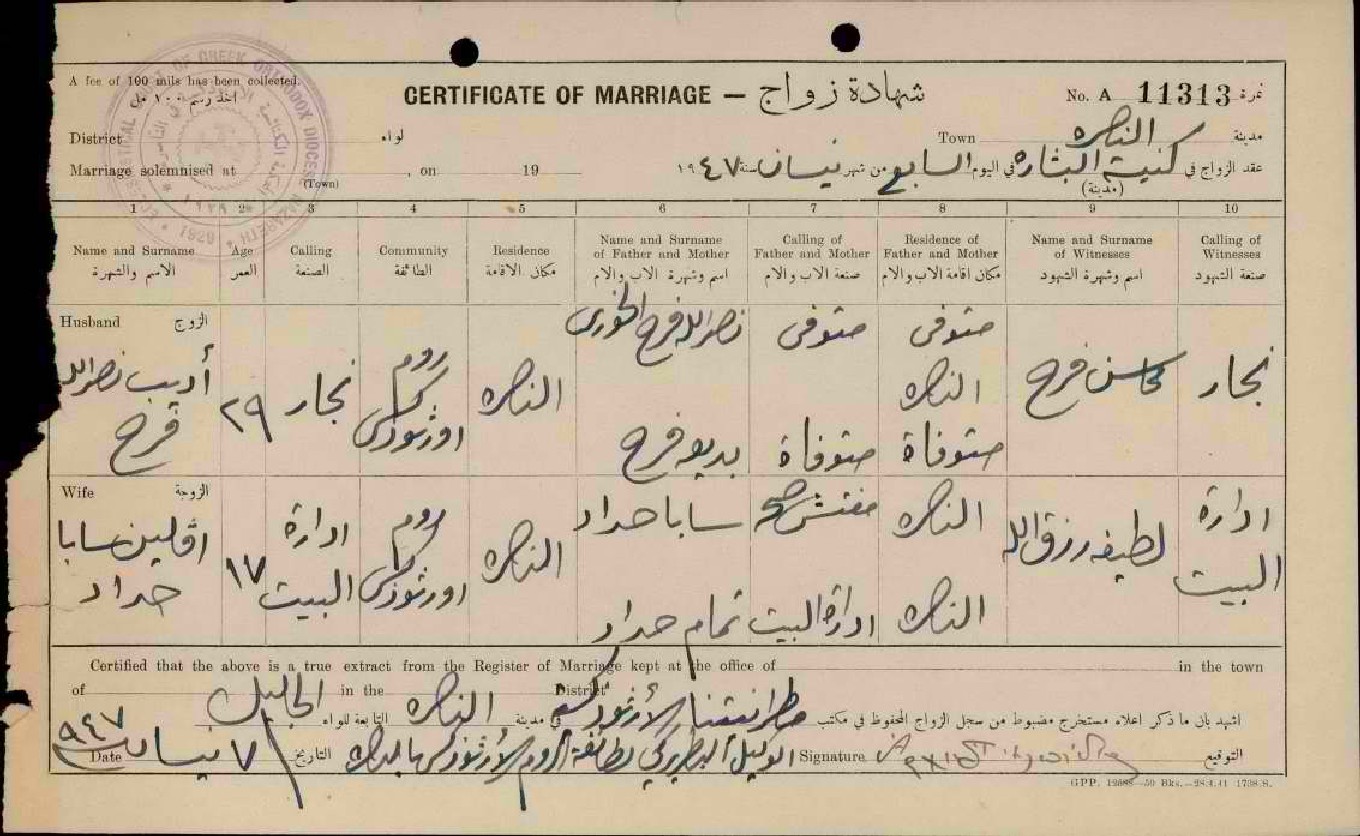 A fee of 100 mils has been collected.
اخذ رسم ١٠٠ مل
CERTIFICATE OF MARRIAGE — شهادة زواج
No. A 11313 نمرة
District لواء Town الناصره مدينة
Marriage solemnised at , on 19
(Town)
عقد الزواج في كنيسة البشاره في اليوم السابع من شهر نيسان سنة ١٩٤٧
(مدينة)
1 2 3 4 5 6 7 8 9 10
Name and Surname الاسم والشهرة
Age العمر
Calling الصنعة
Community الطائفة
Residence مكان الاقامة
Name and Surname of Father and Mother اسم وشهرة الاب والام
Calling of Father and Mother صنعة الاب والام
Residence of Father and Mother مكان اقامة الاب والام
Name and Surname of Witnesses اسم وشهرة الشهود
Calling of Witnesses صنعة الشهود
Husband الزوج
أديب نصرالله فرح
٢٩
نجار
روم اورثوذكس
الناصره
نصرالله فرح الخوري
بديعه فرح
متوفى
متوفاة
متوفى
الناصره
متوفاة
فرح
نجار
Wife الزوجة
اڤلين سابا حداد
١٧
ادارة البيت
روم اورثوذكس
الناصره
سابا حداد
تمام حداد
مفتش صحة
ادارة البيت
الناصره
الناصره
لطيفه رزق الله
ادارة البيت
Certified that the above is a true extract from the Register of Marriage kept at the office of in the town
of in the District
اشهد بان ما ذكر اعلاه مستخرج مضبوط من سجل الزواج المحفوظ في مكتب مطرانيتنا الأرثوذكسية في مدينة الناصره التابعة للواء الجليل
Date ٧ نيسان ٩٤٧ التاريخ
الوكيل البطريركي لطائفة الروم الأرثوذكس بالناصره
Signature التوقيع
GPP. 12588—50 Bks.—28.4.41 1738.S.